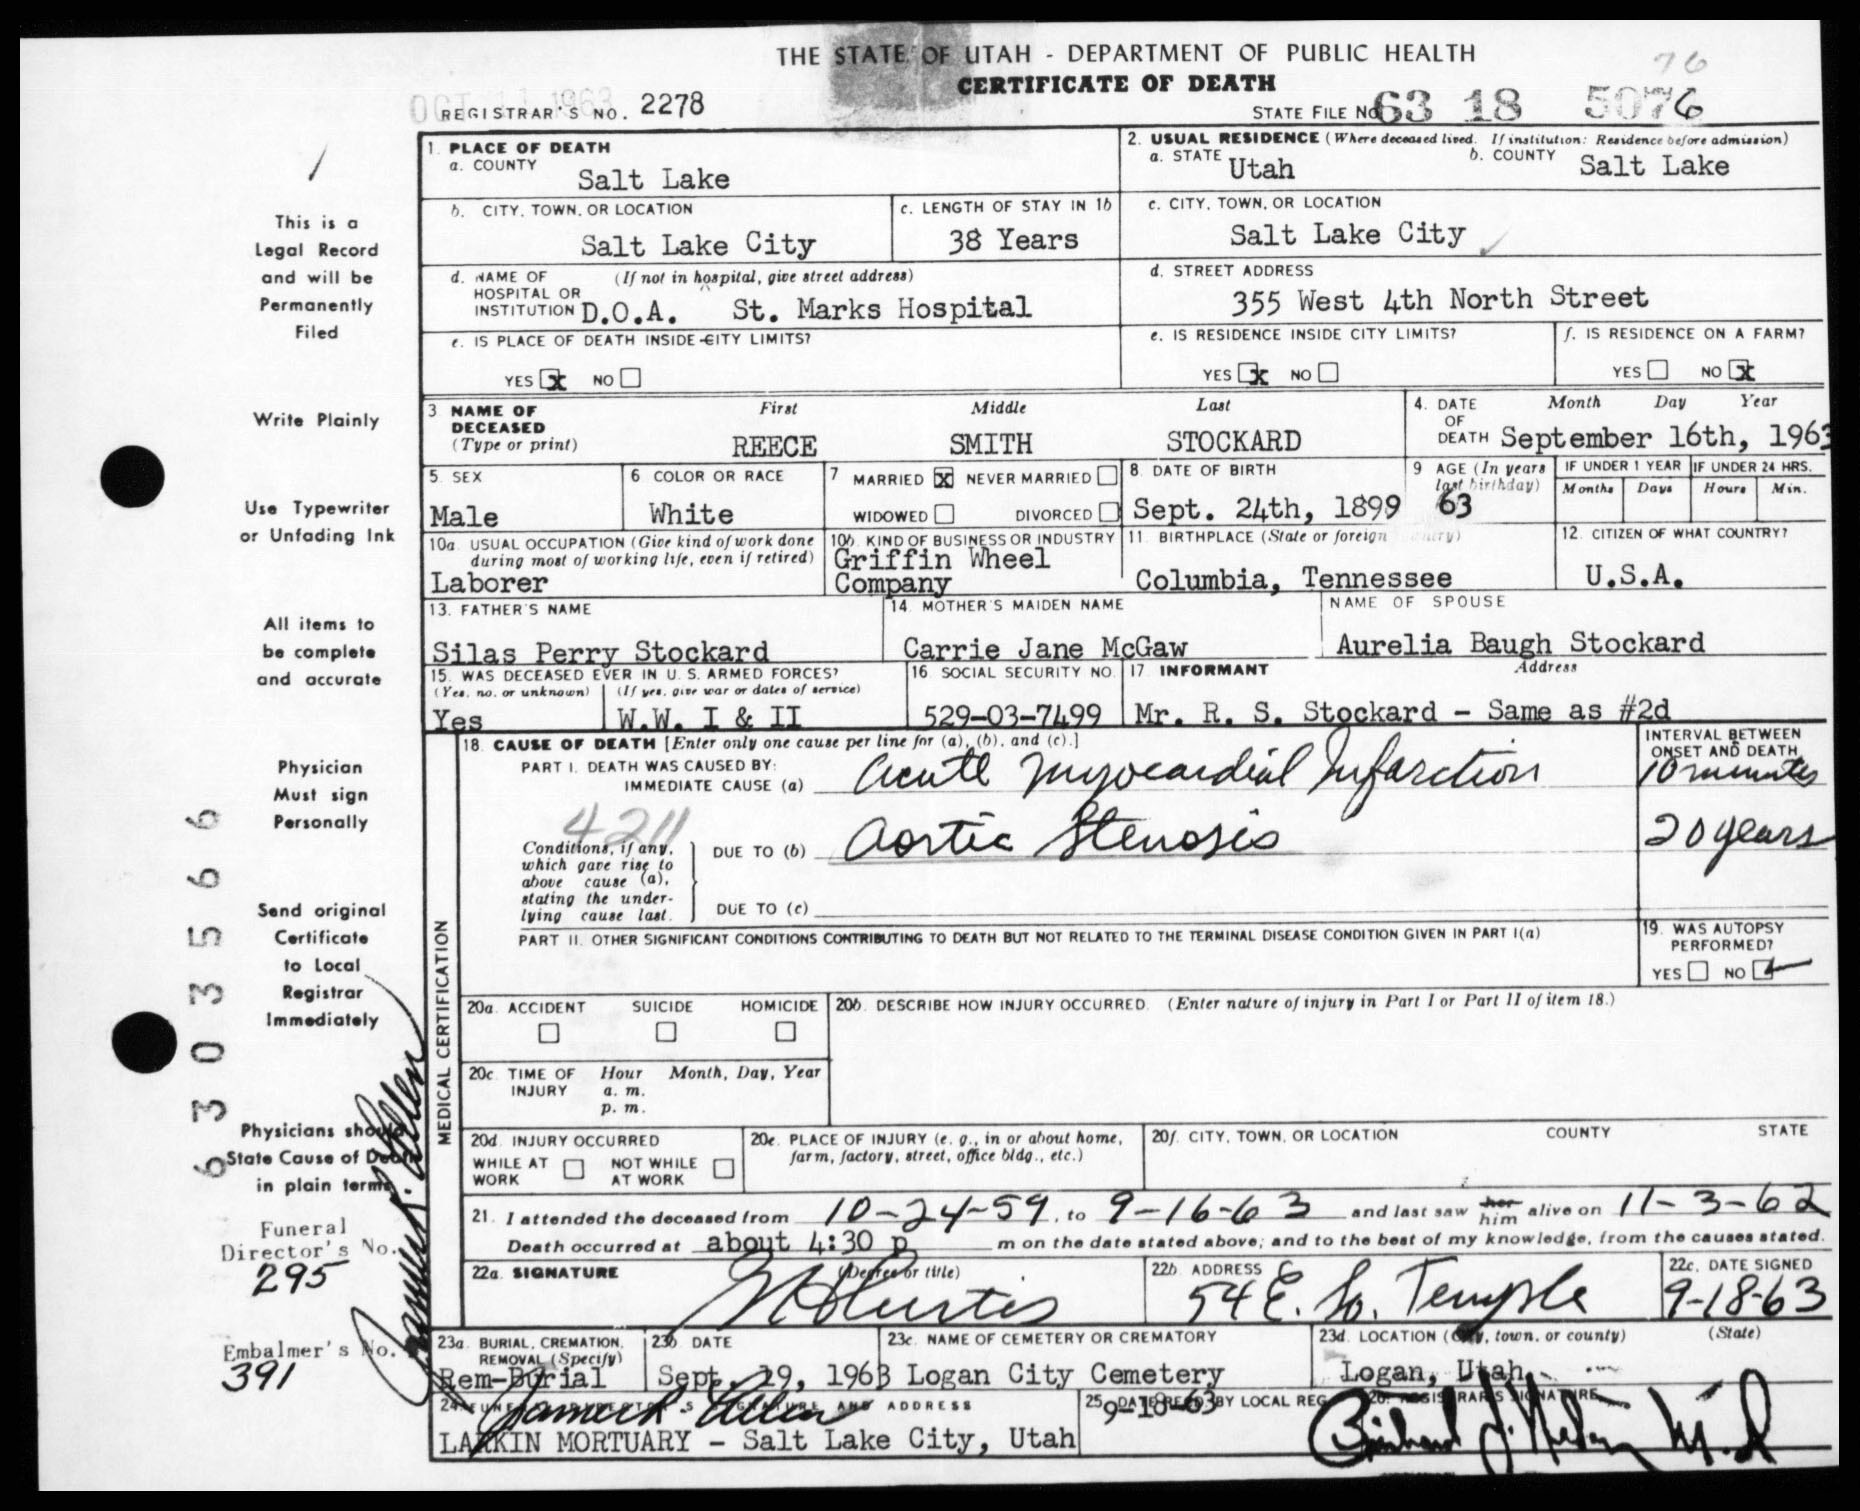 THE STATE OF UTAH - DEPARTMENT OF PUBLIC HEALTH
76
CERTIFICATE OF DEATH
OCT 11 1963
REGISTRAR'S NO. 2278
STATE FILE NO. 63 18 5076
1. PLACE OF DEATH
a. COUNTY
Salt Lake
2. USUAL RESIDENCE (Where deceased lived. If institution: Residence before admission)
a. STATE Utah
b. COUNTY Salt Lake
b. CITY, TOWN, OR LOCATION
Salt Lake City
c. LENGTH OF STAY IN 1b
38 Years
c. CITY, TOWN, OR LOCATION
Salt Lake City
d. NAME OF (If not in hospital, give street address)
HOSPITAL OR
INSTITUTION D.O.A. St. Marks Hospital
d. STREET ADDRESS
355 West 4th North Street
e. IS PLACE OF DEATH INSIDE CITY LIMITS?
YES x NO
e. IS RESIDENCE INSIDE CITY LIMITS?
YES x NO
f. IS RESIDENCE ON A FARM?
YES NO x
3 NAME OF DECEASED
(Type or print)
First Middle Last
REECE SMITH STOCKARD
4. DATE OF DEATH
Month Day Year
September 16th, 1963
5. SEX
Male
6 COLOR OR RACE
White
7 MARRIED X NEVER MARRIED
WIDOWED DIVORCED
8. DATE OF BIRTH
Sept. 24th, 1899
9 AGE (In years
last birthday)
63
IF UNDER 1 YEAR
Months Days
IF UNDER 24 HRS.
Hours Min.
10a. USUAL OCCUPATION (Give kind of work done
during most of working life, even if retired)
Laborer
10b. KIND OF BUSINESS OR INDUSTRY
Griffin Wheel
Company
11. BIRTHPLACE (State or foreign country)
Columbia, Tennessee
12. CITIZEN OF WHAT COUNTRY?
U.S.A.
13. FATHER'S NAME
Silas Perry Stockard
14. MOTHER'S MAIDEN NAME
Carrie Jane McGaw
NAME OF SPOUSE
Aurelia Baugh Stockard
15. WAS DECEASED EVER IN U. S. ARMED FORCES?
(Yes, no, or unknown) (If yes, give war or dates of service)
Yes W.W. I & II
16. SOCIAL SECURITY NO.
529-03-7499
17. INFORMANT Address
Mr. R. S. Stockard - Same as #2d
MEDICAL CERTIFICATION
18. CAUSE OF DEATH [Enter only one cause per line for (a), (b), and (c).]
PART I. DEATH WAS CAUSED BY:
IMMEDIATE CAUSE (a) Acute Myocardial Infarction
INTERVAL BETWEEN
ONSET AND DEATH
10 minutes
4211
Conditions, if any,
which gave rise to
above cause (a),
stating the under-
lying cause last.
DUE TO (b) Aortic Stenosis
20 years
DUE TO (c)
PART II. OTHER SIGNIFICANT CONDITIONS CONTRIBUTING TO DEATH BUT NOT RELATED TO THE TERMINAL DISEASE CONDITION GIVEN IN PART I(a)
19. WAS AUTOPSY
PERFORMED?
YES NO
20a. ACCIDENT SUICIDE HOMICIDE
20b. DESCRIBE HOW INJURY OCCURRED. (Enter nature of injury in Part I or Part II of item 18.)
20c. TIME OF INJURY
Hour Month, Day, Year
a. m.
p. m.
20d. INJURY OCCURRED
WHILE AT WORK
NOT WHILE AT WORK
20e. PLACE OF INJURY (e. g., in or about home,
farm, factory, street, office bldg., etc.)
20f. CITY, TOWN, OR LOCATION COUNTY STATE
21. I attended the deceased from 10-24-59, to 9-16-63 and last saw her him alive on 11-3-62
Death occurred at about 4:30 p m on the date stated above; and to the best of my knowledge, from the causes stated.
22a. SIGNATURE (Degree or title)
Curtis
22b. ADDRESS
54 E. So. Temple
22c. DATE SIGNED
9-18-63
23a. BURIAL, CREMATION,
REMOVAL (Specify)
Rem-Burial
23b. DATE
Sept. 19, 1963
23c. NAME OF CEMETERY OR CREMATORY
Logan City Cemetery
23d. LOCATION (City, town, or county) (State)
Logan, Utah
24. FUNERAL DIRECTOR'S SIGNATURE AND ADDRESS
LARKIN MORTUARY - Salt Lake City, Utah
25. DATE REC'D BY LOCAL REG.
9-18-63
26. REGISTRAR'S SIGNATURE
M.D
This is a
Legal Record
and will be
Permanently
Filed
Write Plainly
Use Typewriter
or Unfading Ink
All items to
be complete
and accurate
Physician
Must sign
Personally
Send original
Certificate
to Local
Registrar
Immediately
Physicians should
State Cause of Death
in plain terms
Funeral
Director's No.
295
Embalmer's No.
391
6 3 0 3 5 6 6